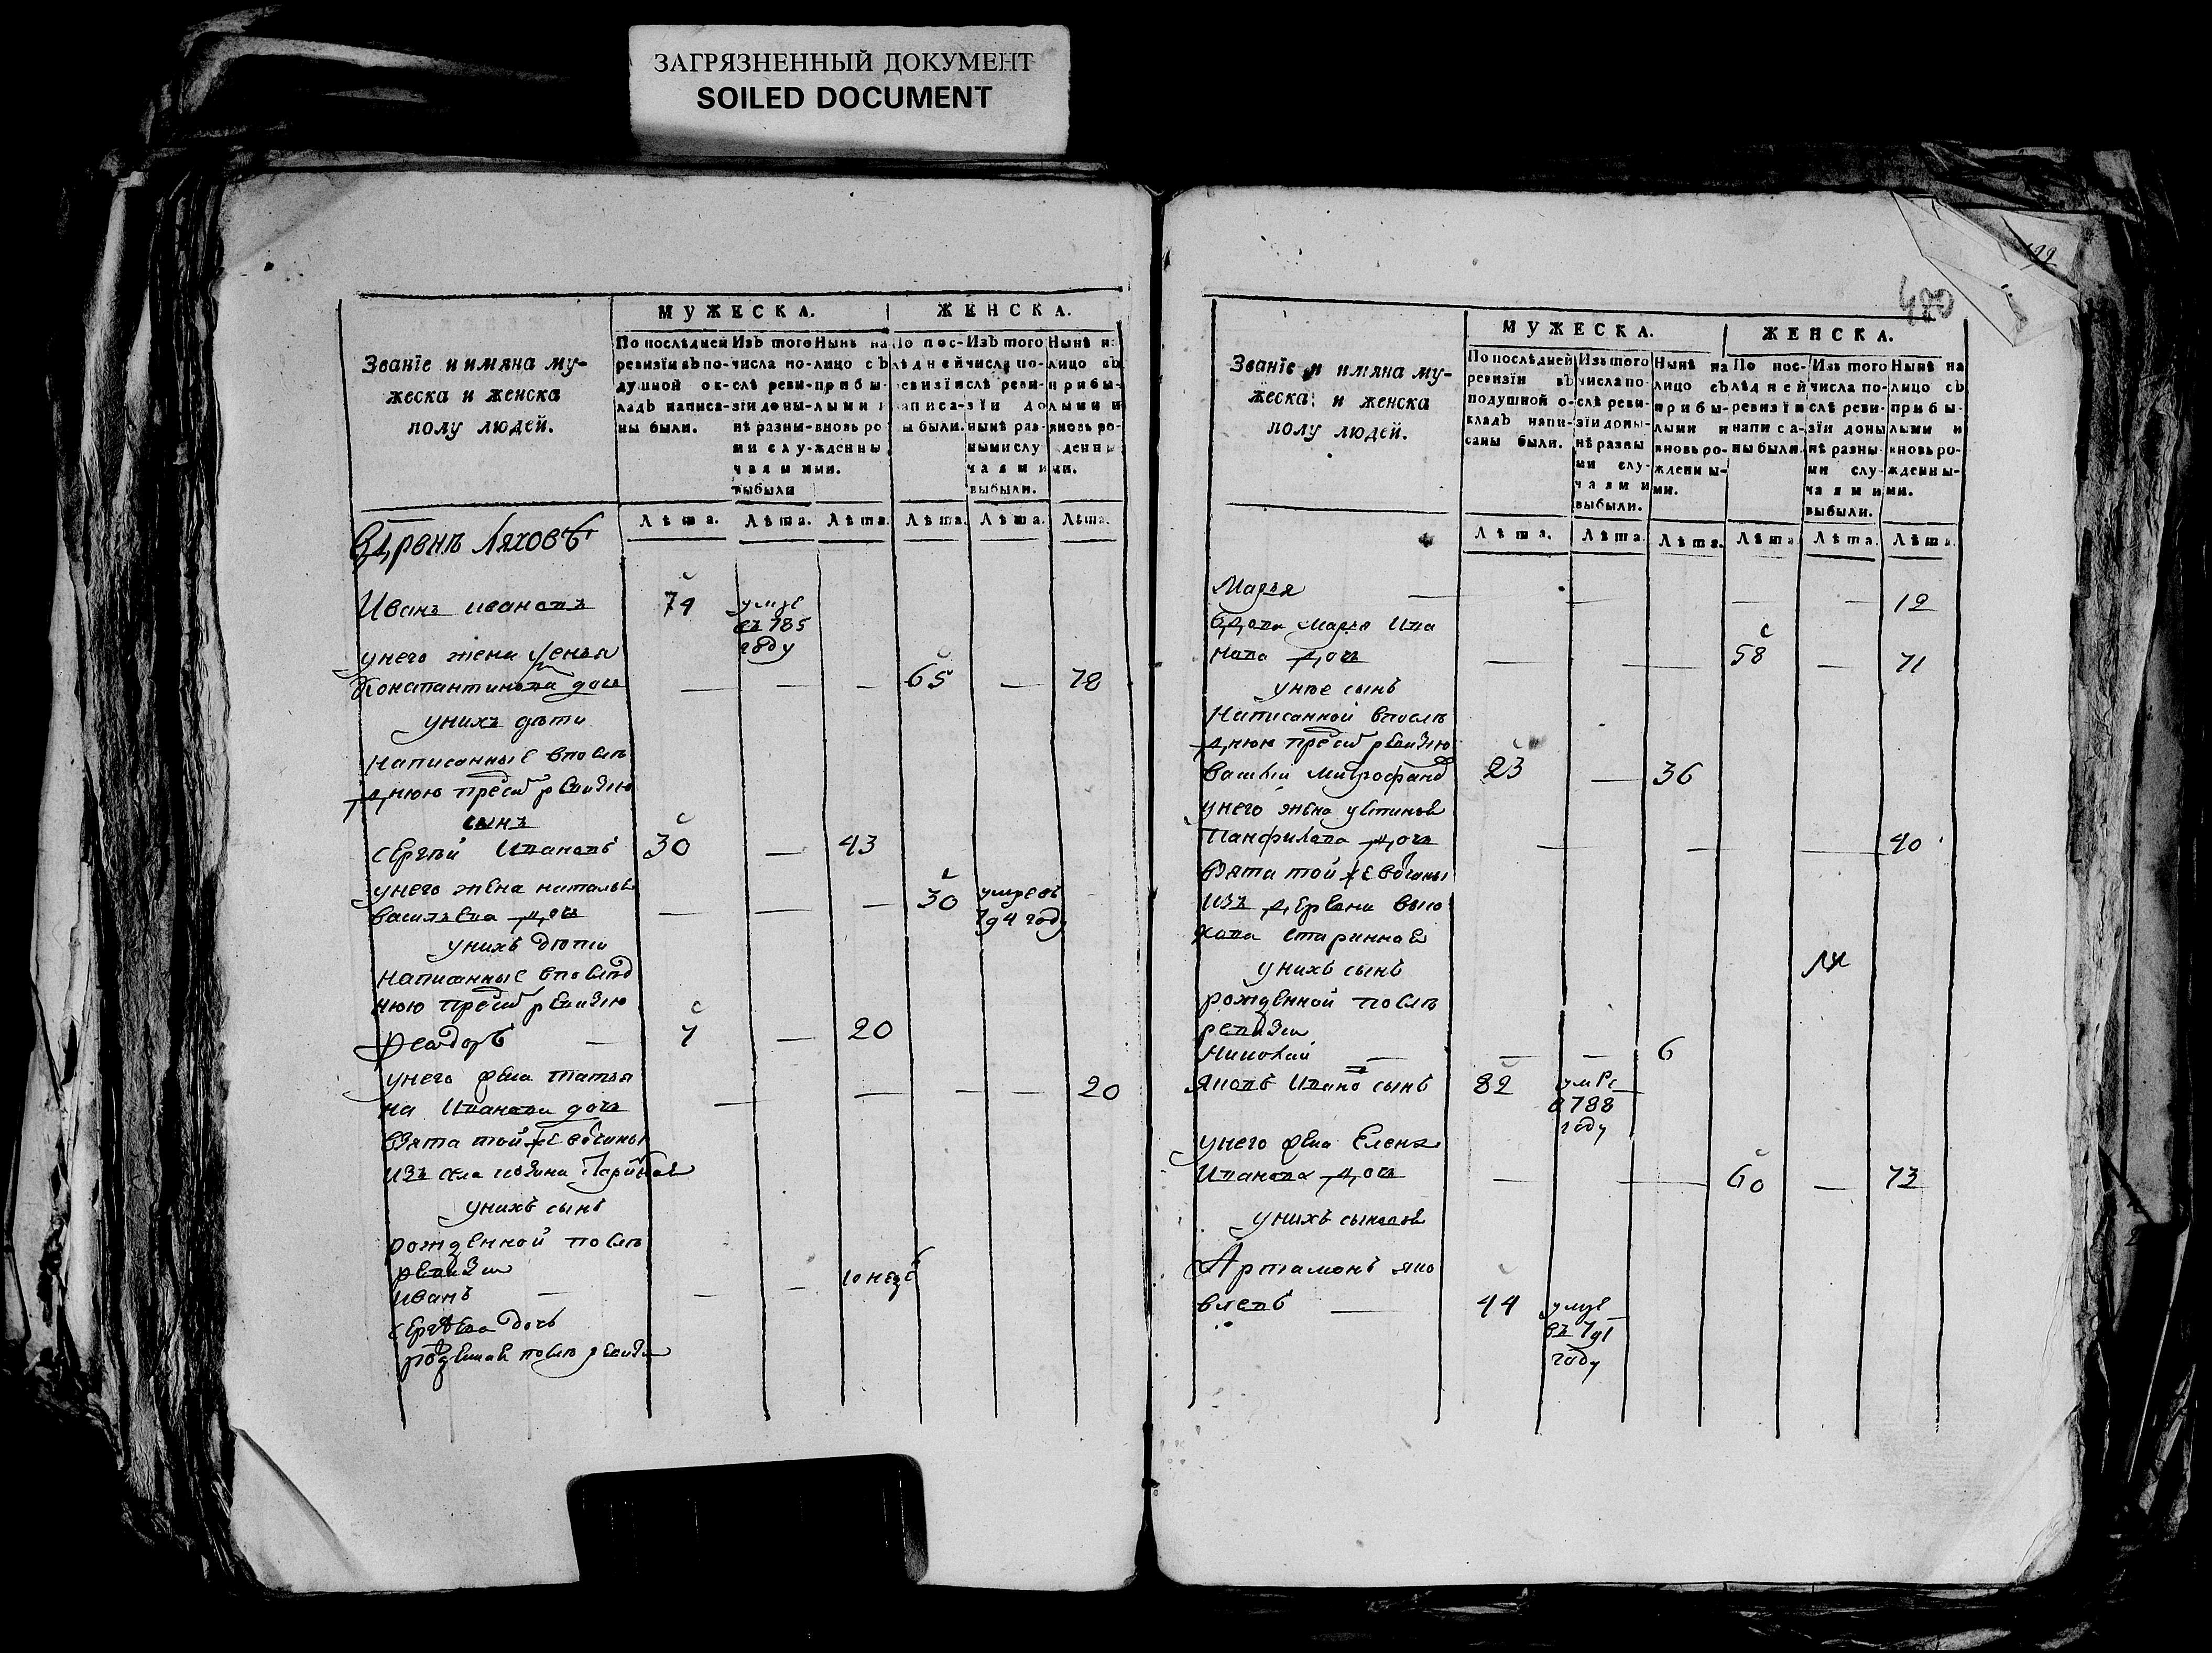 ЗАГРЯЗНЕННЫЙ ДОКУМЕНТ
SOILED DOCUMENT
Званїе и имяна му-
жеска и женска
полу людей.
МУЖЕСКА.
ЖЕНСКА.
По послѣдней ревизїи въ по-душной ок-ладъ написа-ны были.
Изъ того числа по-слѣ реви-зїи доны-нѣ разны-ми слу-чаями выбыли
Нынѣ на лицо съ прибы-лыми и вновь ро-жденны-ми.
По пос-лѣдней ревизїи написа-ны были.
Изъ того числа по-слѣ реви-зїи до нынѣ раз-ными слу чаями выбыли.
Нынѣ на лицо съ прибы-лыми и вновь ро-жденны-ми.
Лѣта. Лѣта. Лѣта. Лѣта. Лѣта. Лѣта.
Ляховѣ
Иванъ ивановъ 74 умре
въ 785
году
унего жена
Константинова дочь — — — 65 — 78
унихъ дѣти
написанные впослѣ
днюю пред ревизию
сынъ
Сергѣй Ивановъ 30 — 43
унего жена наталья 30 умре въ
васильева дочь — — — 794 году
унихъ дѣти
написанные впослѣд
нюю пред ревизию
Феодоръ — 7 — 20
унего жена татья
на Иванова дочь — — — — 20
взята той же вотчины
изъ села
унихъ сынъ
рожденной послѣ
ревизии
иванъ — — — 10 неде
Сергѣева дочь
рожденная послѣ ревизии
122
Званїе и имяна му-
жеска и женска
полу людей.
МУЖЕСКА.
ЖЕНСКА.
По послѣдней ревизїи въ подушной о-кладъ напи-саны были.
Изъ того числа по-слѣ реви-зїи доны-нѣ разны ми слу-чаями выбыли.
Нынѣ на лицо съ прибы-лыми и вновь ро-жденны-ми.
По пос-лѣдней ревизїи написа-ны были.
Изъ того числа по-слѣ реви-зїи доны нѣ разны-ми слу-чаями выбыли.
Нынѣ на лицо съ прибы-лыми и вновь ро-жденны-ми.
Лѣта. Лѣта. Лѣта. Лѣта. Лѣта. Лѣта.
Марья — — — — 12
вдова Марья Ива
нова дочь — — 58 — 71
унѣе сынъ
Написанной впослѣ
днюю пред ревизию
василий Митрофанов 23 — 36
унего жена устинья
Панфилова дочь — — — 40
взята той же вотчины
изъ деревни
старинная
унихъ сынъ
рожденной послѣ
ревизии
Николай — — — 6
Яковъ Ивано сынъ 82 умре
в 788
году
унего жена Елена
Иванова дочь — — 60 — 73
унихъ сыновья
Артамонъ яко
влевъ — 44 умре
въ 791
году